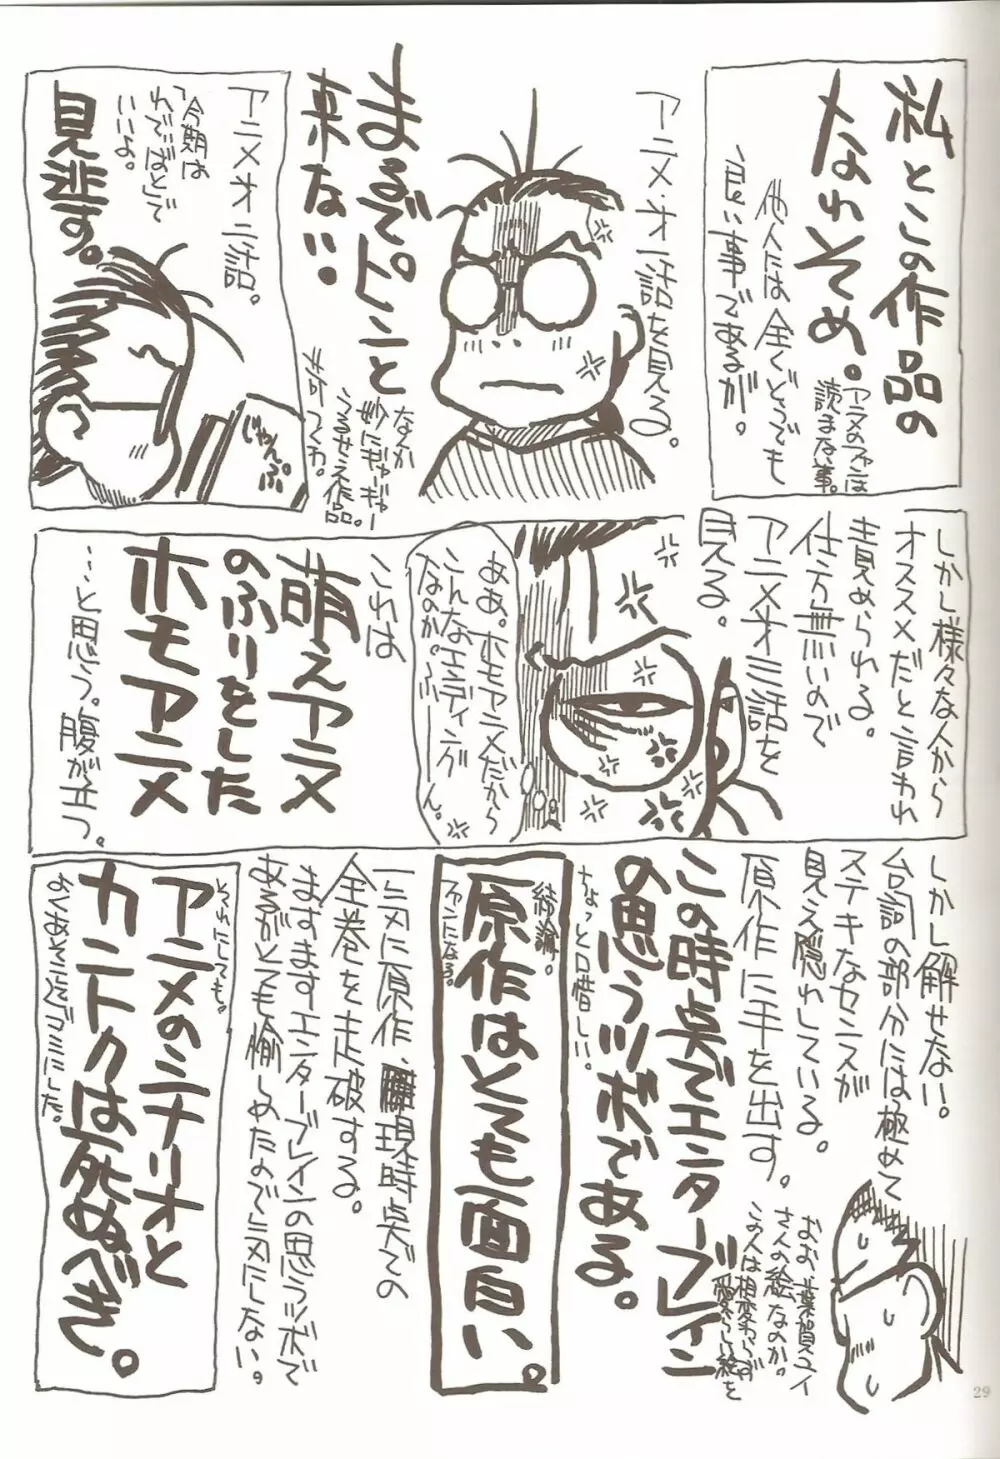 私とこの作品の
なれそめ。
アニメのファンは
読まな事。
他人には全くどうでも
良い事であるが。
アニメオ一話を見る。
まるでピンと
来ない。
なんか
妙にギャーギャー
うるせえ作品。
アニメオ二話。
「今期は
れでぃばと」で
いいよ。
見逃す。
じゃんぷ
しかし様々な人から
オススメだと言われ
責められる。
仕方無いので
アニメオ三話を
見る。
ああ。ホモアニメだから
こんなエンディング
なのか。ふーん。
これは
萌えアニメ
のふりをした
ホモアニメ
…と思う。腹が立つ。
しかし解せない。
台詞の部分には極めて
ステキなセンスが
見え隠れしている。
原作に手を出す。
おお、葉賀ユイ
さんの絵なのか。
この人は相変わらず
愛らしい絵を
この時点でエンターブレイン
の思うツボである。
ちょっと口惜しい…
結論。
原作はとても面白い。
ファンになる。
一気に原作、現時点での
全巻を走破する。
ますますエンターブレインの思うツボで
あるがとても愉しめたので気にしない。
それにしても。
アニメのシナリオと
カントクは死ぬべき。